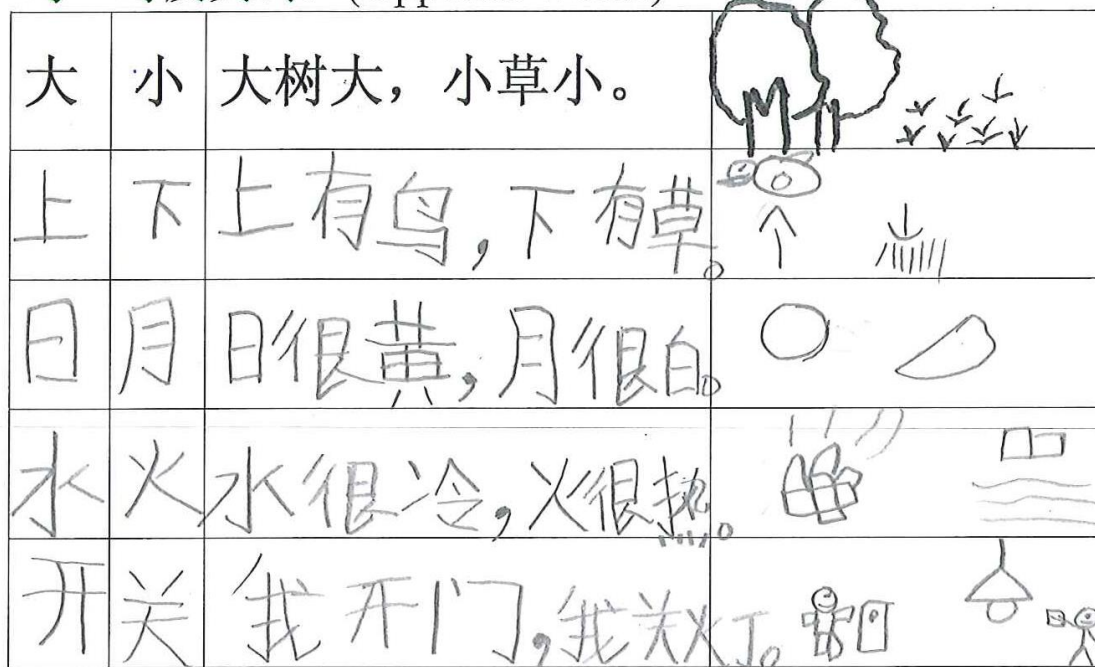 大 小 大树大，小草小。
上 下 上有鸟，下有草。
日 月 日很黄，月很白。
水 火 水很冷，火很热。
开 关 我开门，我关灯。